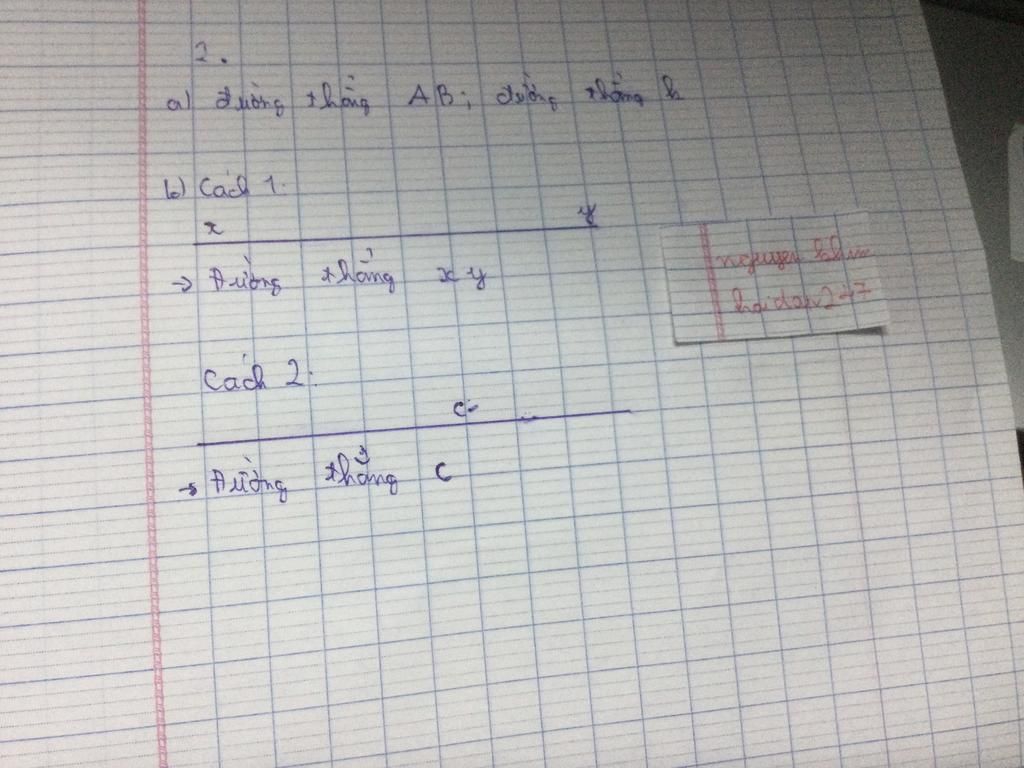 2.
a) đường thẳng AB; đường thẳng h
b) Cách 1.
x y
→ Đường thẳng xy
Cách 2:
c
→ Đường thẳng c
nguyen
hoidap247